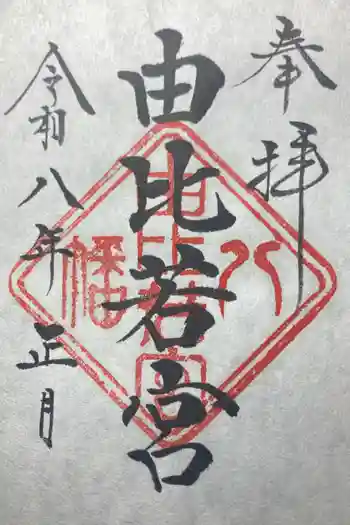 奉拝
由比若宮
八幡
由比若宮
令和八年正月